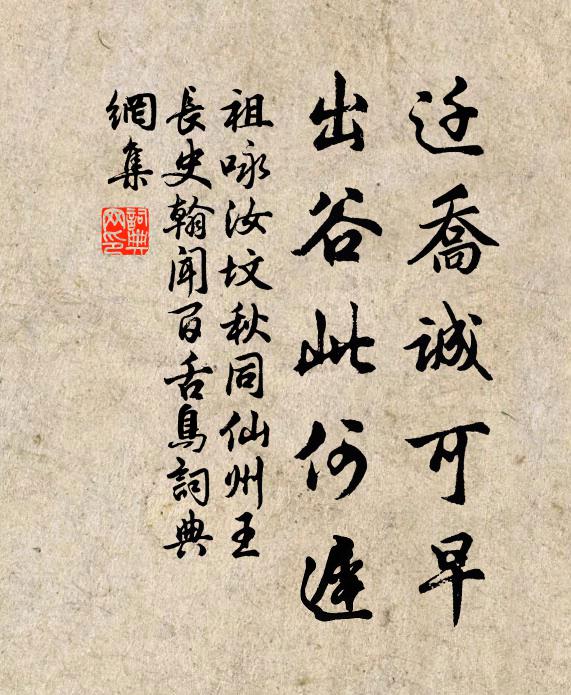 迁喬誠可早
出谷此何遲
祖咏汝坟秋同仙州王
長史翰闻百舌鳥詞典
網集
詞典
网印